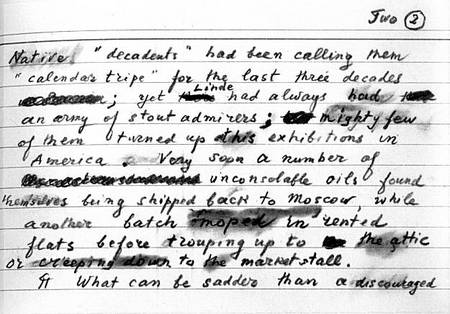 Two 2
Native "decadents" had been calling them
"calendar tripe" for the last three decades
; yet Linde had always had
an army of stout admirers; mighty few
of them turned up at his exhibitions in
America. Very soon a number of
unconsolable oils found
themselves being shipped back to Moscow, while
another batch moped in rented
flats before trouping up to the attic
or creeping down to the market stall.
¶ What can be sadder than a discouraged